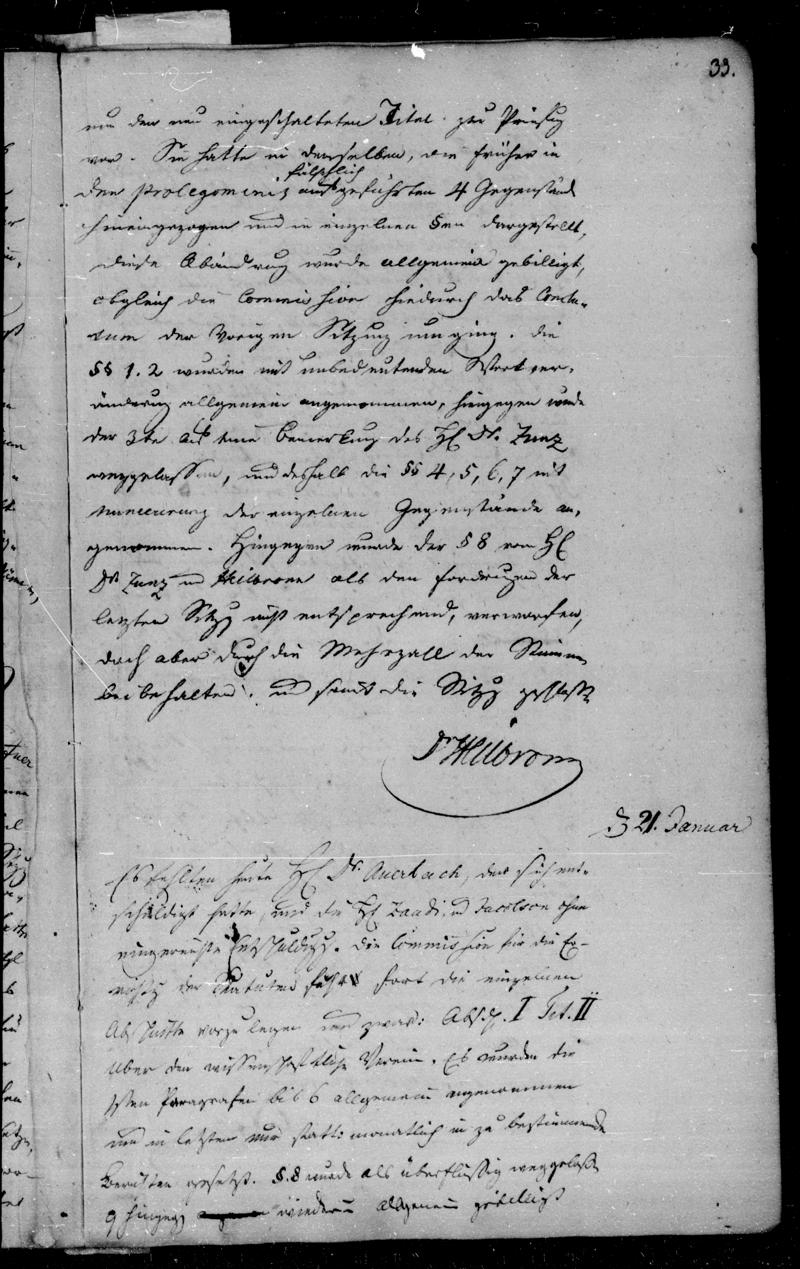 33.
nun den neu eingeschalteten Titel zur Prüfung
vor. Sie hatte in denselben, die früher in
fälschlich
den prolegominis aufgeführten 4 Gegenstände
hineingezogen und in einzelnen §en dargestellt,
diese Abändrung wurde allgemein gebilligt,
obgleich die Commission hiedurch das Conclu-
sum der vorigen Sitzung umging. Die
§§ 1. 2 wurden mit unbedeutenden Wortver-
änderung allgemein angenommen, hingegen wurde
der 3te auf eine Bemerkung des H Dr. Zunz
weggelassen, und deshalb die §§ 4, 5, 6, 7 mit
numerirung der einzelnen Gegenstände an-
genommen. Hingegen wurde der § 8 von H
Dr Zunz und Heilbronn als den fordrungen der
letzten Sitzg nicht entsprechend, verworfen,
doch aber durch die Mehrzall der Stimmen
beibehalten. und somit die Sitzg geschlossen
Dr Heilbronn
21. Januar
Es fehlten heute H Dr. Auerbach, der sich ent-
schuldigt hatte, und die H und Jacobson ohne
eingereichte Entschuldigg. Die Commission für die
der Statuten fuhr fort die einzelnen
Abschnitte vorzulegen und zwar: Absch. I Tit. II
über den wissenschaftliche Verein. Es wurden die
ersten Paragrafen bis 6 allgemein angenommen
und in letzten nur statt: monatlich in zu bestimmende
gesetzt. §. 8 wurde als überflüssig weggelassen
9 hingegen wiederum allgemein gebilligt